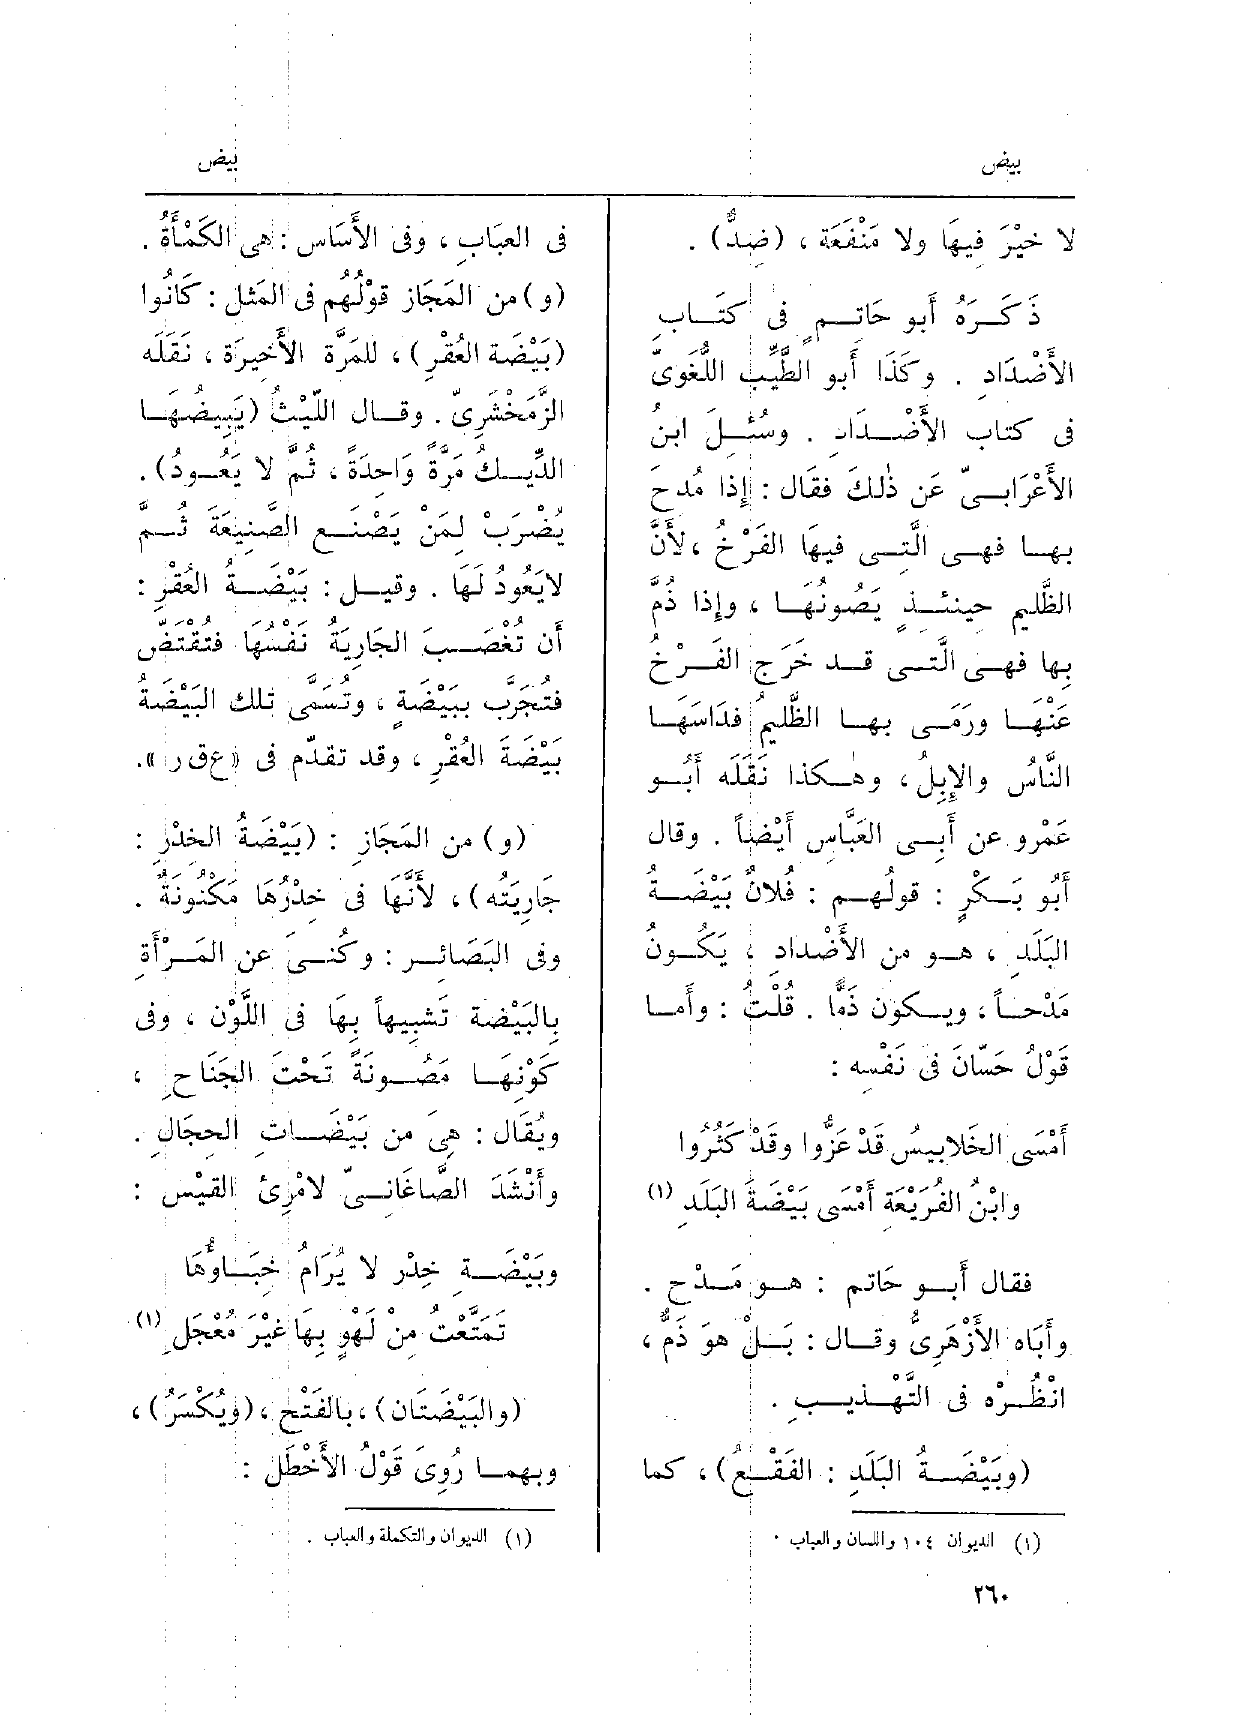 بيض
بيض
لا خَيْرَ فِيهَا ولا مَنْفَعَة ، (ضِدٌّ) .
ذَكَرَهُ أَبو حَاتِمٍ فى كِتَابِ
الأَضْدَادِ . وكَذَا أَبو الطَّيِّبِ اللُّغَوِىّ
فى كتاب الأَضْدَاد . وسُئِلَ ابنُ
الأَعْرَابِىّ عَن ذٰلِكَ فقَال : إِذا مُدِحَ
بها فهى الَّتِى فِيهَا الفَرْخُ ، لأَنَّ
الظَّلِيمِ حِينَئِذٍ يَصُونُهَا ، وإِذا ذُمَّ
بِها فهى الَّتِى قد خَرَج الفَرْخُ
عَنْهَا ورَمَى بها الظَّلِيمُ فدَاسَهَا
النَّاسُ والإِبِلُ ، وهٰكذا نَقَلَه أَبُو
عَمْرو عن أَبِى العَبَّاس أَيْضاً . وقال
أَبُو بَكْرٍ : قولُهم : فُلانٌ بَيْضَةُ
البَلَدِ ، هو من الأَضْداد ، يَكُونُ
مَدْحاً ، ويكون ذَمًّا . قُلْتُ : وأَما
قَوْلُ حَسَّانَ فى نَفْسِه :
أَمْسَى الخَلابِيسُ قَدْ عَزُّوا وقَدْ كَثُرُوا
وابْنُ الفُرَيْعَةِ أَمْسَى بَيْضَةَ البَلَدِ (١)
فقال أَبو حَاتم : هو مَدْح .
وأَبَاه الأَزْهَرِىُّ وقال : بَلْ هوَ ذَمٌّ ،
انْظُرْه فى التَّهْذِيبِ .
(وبَيْضَةُ البَلَدِ : الفَقْعُ) ، كما
(١) الديوان ١٠٤ واللسان والعباب .
فى العبَابِ ، وفى الأَسَاس : هى الكَمْأَةُ .
(و) من المَجَاز قَوْلُهُم فى المَثَل : كَانُوا
(بَيْضَة العُقْرِ) ، للمَرَّة الأَخِيرَة ، نَقَلَه
الزَّمَخْشَرِىّ . وقال اللَّيْثُ (يَبِيضُهَا
الدِّيكُ مَرَّةً وَاحِدَةً ، ثُمَّ لا يَعُودُ) .
يُضْرَبُ لِمَنْ يَصْنَع الصَّنِيعَةَ ثُمَّ
لايَعُودُ لَهَا . وقيل : بَيْضَةُ العُقْرِ :
أَن تُغْصَبَ الجَارِيَةُ نَفْسُهَا فتُقْتَضّ
فتُجَرَّب ببَيْضَةٍ ، وتُسَمَّى تلك البَيْضَةُ
بَيْضَةَ العُقْرِ ، وقد تقدّم فى «ع ق ر» .
(و) من المَجَازِ : (بَيْضَةُ الخِدْرِ :
جَارِيَتُه) ، لأَنَّهَا فى خِدْرِهَا مَكْنُونَةٌ .
وفى البَصَائر : وكُنِىَ عن المَرْأَةِ
بِالبَيْضَة تَشبِيهاً بِهَا فى اللَّوْن ، وفى
كَوْنِهَا مَصُونَةً تَحْتَ الجَنَاحِ ،
ويُقَال : هِىَ من بَيْضَاتِ الحِجَالِ .
وأَنْشَدَ الصَّاغَانِىّ لامْرِئ القَيْس :
وبَيْضَةِ خِدْر لا يُرَامُ خِبَاؤُهَا
تَمَتَّعْت مِن لَهْوٍ بِهَا غَيْرَ مُعْجَلِ (١)
(والبَيْضَتَان) ، بالفَتْحِ ، (ويُكْسَرُ) ،
وبهما رُوِىَ قَوْلُ الأَخْطَلِ :
(١) الديوان والتكملة والعباب .
٢٦٠